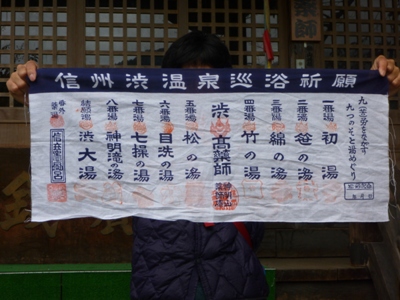 師
信州渋温泉巡浴祈願
九(苦)労をながす
九つのそと湯めぐり
一番湯 初湯
二番湯 笹の湯
三番湯 綿の湯
四番湯 竹の湯
渋 高薬師
五番湯 松の湯
六番湯 目洗の湯
七番湯 七操の湯
八番湯 神明滝の湯
結願湯 渋大湯
番外薬湯 信玄竈風呂